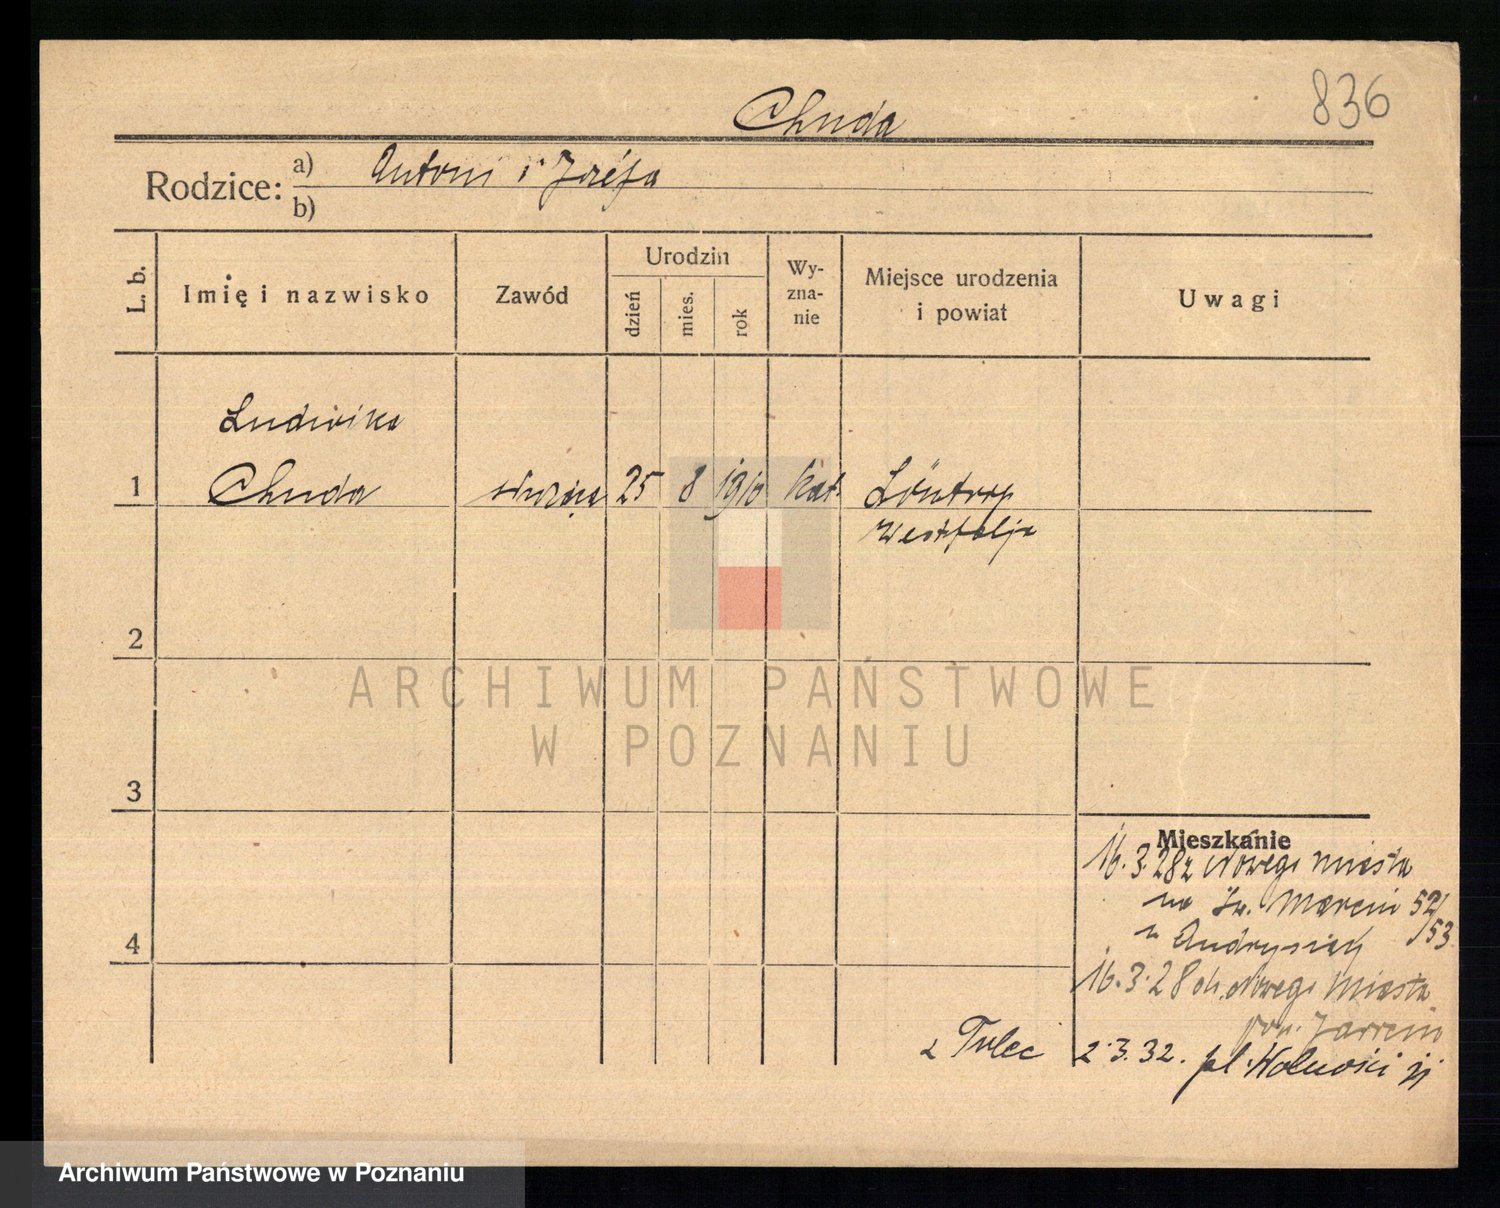 836
Chuda
Rodzice: a) Antoni i Józefa
b)
L. b.
Imię i nazwisko
Zawód
Urodzin
dzień
mies.
rok
Wy-
zna-
nie
Miejsce urodzenia
i powiat
Uwagi
Ludwika
1 Chuda służąca 25 8 1910 kat. Löntrop
Westfalja
2
ARCHIWUM PAŃSTWOWE
W POZNANIU
3
Mieszkanie
16.3.28 z Nowego miasta
na Św. Marcin 52/
/53
u Andrysiak
4
16.3.28 Nowego Miasta
pow. Jarocin
z Tulec 2.3.32. pl. Wolności
Archiwum Państwowe w Poznaniu